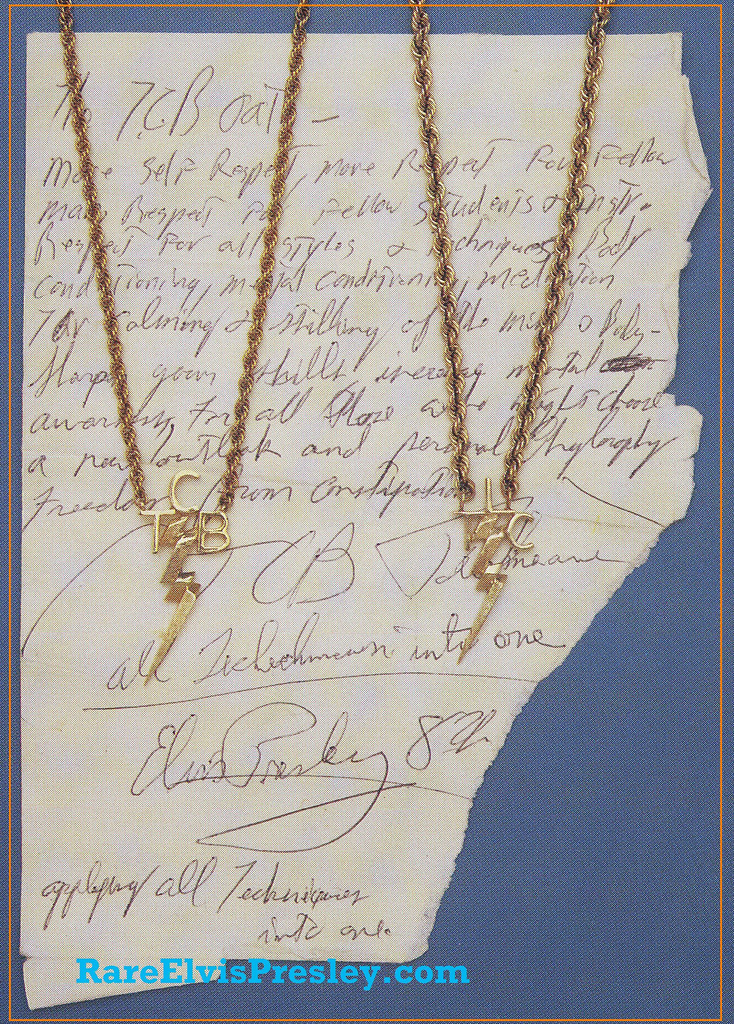 The T.C.B oat -
More Self Respect, more Respect For Fellow
man, Respect For Fellow Students & Instr.
Respect For all styles & techniques, Body
conditioning, mental conditioning, meditation
For calming & stilling of the mind & Body-
Sharpen your skills increase mental
awareness, For all those who might choose
a new outlook and personal Phylosophy
Freedom From Constipation
C
T B
L
T C
TCB
all into one
Elvis Presley 8th
applying all Techniques
into one.
RareElvisPresley.com